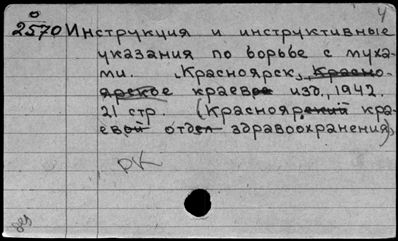 4
2570 Инструкция и инструктивные
указания по борьбе с муха-
ми. Красноярск, Красно-
ярское краевое изд., 1942.
21 стр. (Красноярский кра-
евой отдел здравоохранения)
РК